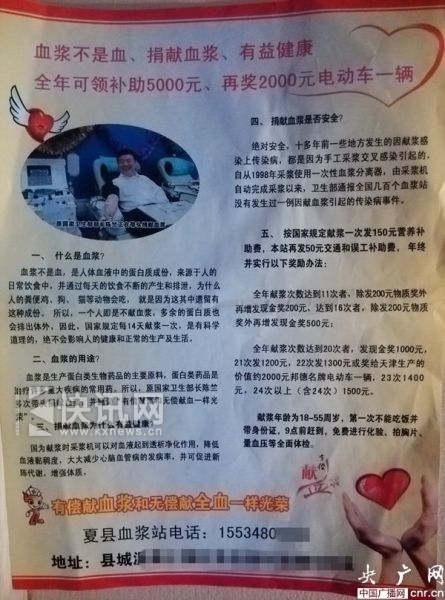 血浆不是血、捐献血浆、有益健康
全年可领补助5000元、再奖2000元电动车一辆
原国家卫生部部长陈竺正在带头捐献血浆
一、 什么是血浆？
血浆不是血，是人体血液中的蛋白质成份，来源于人的
日常饮食中，并通过每天的饮食不断的产生和排泄，为什么
人的粪便鸡、狗、猫等动物会吃，就是因为这其中遗留有
这种成份。所以，一个人即是不献血浆，多余的蛋白质也
会排出体外，因此，国家规定每14天献浆一次，是有科学
道理的，绝不会影响人的健康和正常的生产及生活。
二、血浆的用途？
血浆是生产蛋白类生物药品的主要原料，蛋白类药品是
治疗 重大疾病的常用药。所以，原国家卫生部长陈竺
多次带头捐 有偿献浆和无偿献血一样光
荣”
三、捐献血浆为什么有益健康？
因为献浆时采浆机可以对血液起到透析净化作用，降低
血液黏稠度，大大减少心脑血管病的发病率，并可促进新
陈代谢，增强体质。
四、 捐献血浆是否安全？
绝对安全，十多年前一些地方发生的因献浆感
染上传染病，都是因为手工采浆交叉感染引起的，
自从1998年采浆使用一次性血浆分离器，由采浆机
自动完成采浆以来，卫生部通报全国几百个血浆站
没有发生过一例因献血浆引起的传染病事件。
五、 按国家规定献浆一次发150元营养补
助费，本站再发50元交通和误工补助费， 年终
并实行以下奖励办法：
全年献浆次数达到11次者，除发200元物质奖外
再增发现金奖200元，达到16次者，除发200元物质
奖外再增发现金奖500元；
全年献浆次数达到20次者，发现金奖1000元，
21次发1200元，22次发1300元或奖给天津生产的
价值约2000元邦德名牌电动车一辆，23次1400
元，24次以上（含24次）1500元。
献浆年龄为18-55周岁，第一次不能吃饭并
带身份证，9点前赶到，免费进行化验、拍胸片、
量血压等全面体检。
有偿献血浆和无偿献全血一样光荣
夏县血浆站电话：1553480
地址：县城
快讯网
www.kx.cn
央广网
中国广播网 cnr.cn